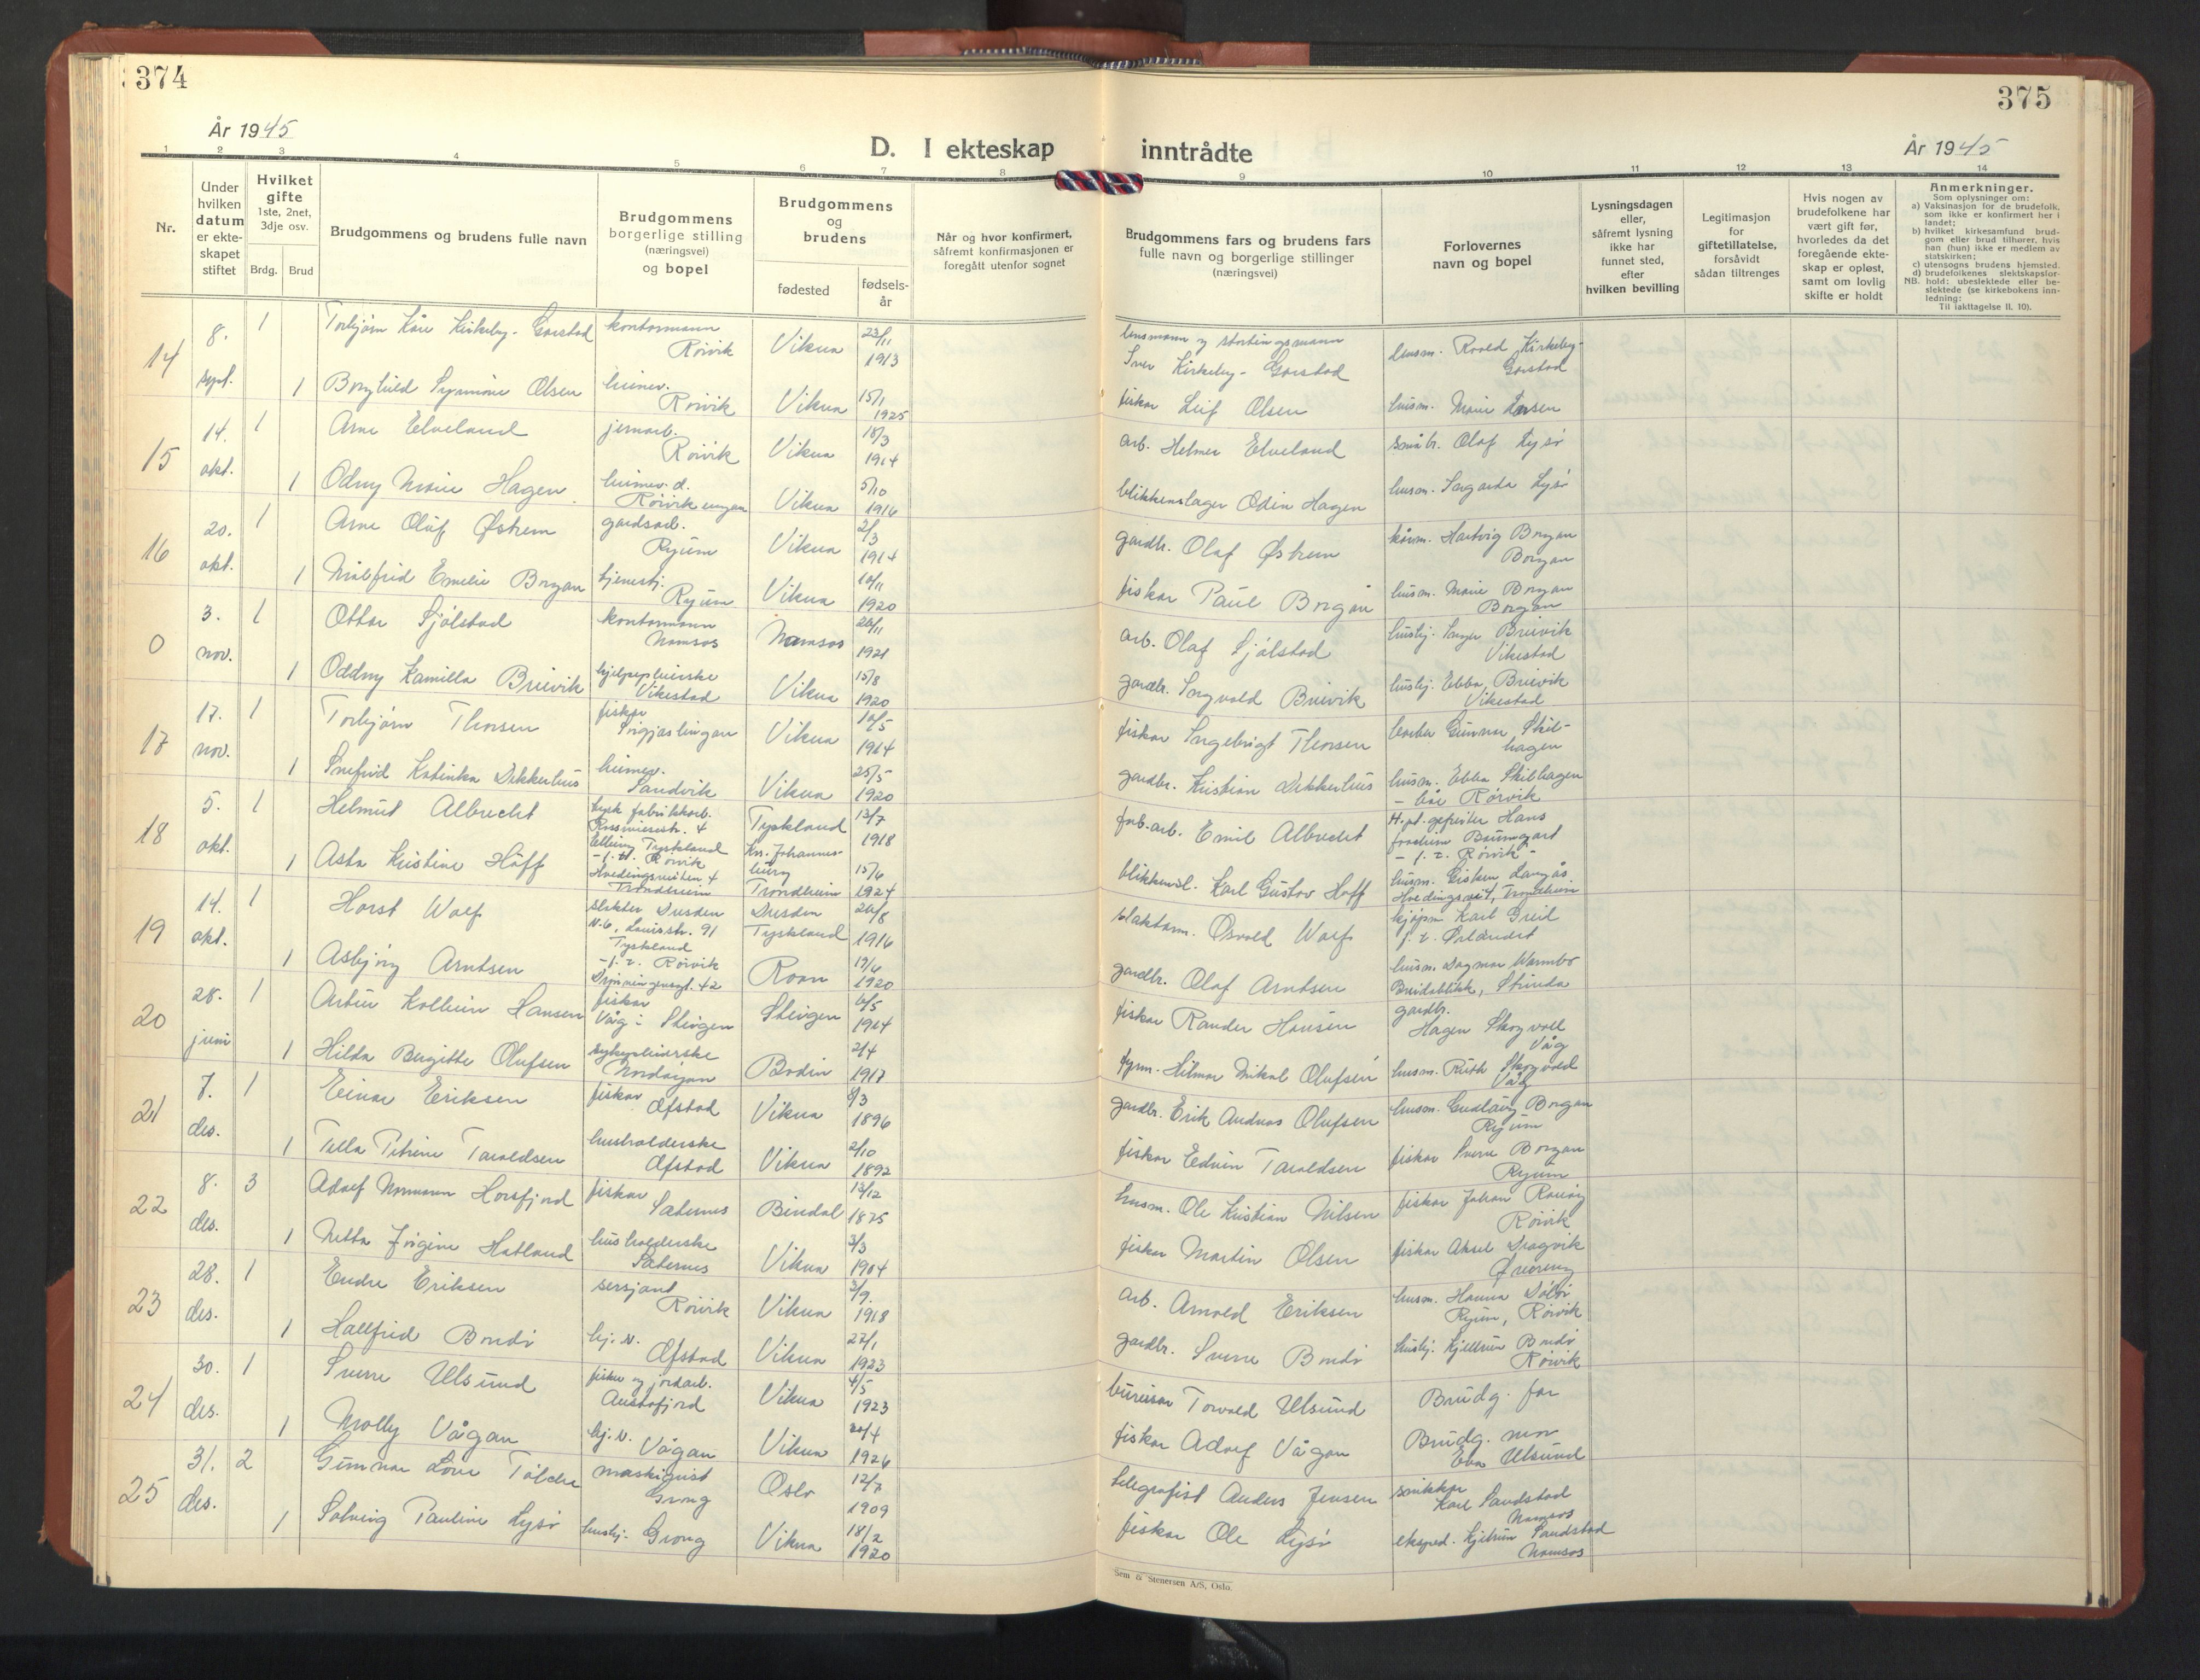 374
375
År 1945
D. I ekteskap inntrådte
År 1945
1 2 3 4 5 6 7 8 9 10 11 12 13 14
Nr.
Under hvilken datum er ekteskapet stiftet
Hvilket gifte
1ste, 2net, 3dje osv.
Brdg. Brud
Brudgommens og brudens fulle navn
Brudgommens borgerlige stilling (næringsvei) og bopel
Brudgommens og brudens
fødested
fødsels-år
Når og hvor konfirmert, såfremt konfirmasjonen er foregått utenfor sognet
Brudgommens fars og brudens fars fulle navn og borgerlige stillinger (næringsvei)
Forlovernes navn og bopel
Lysningsdagen eller, såfremt lysning ikke har funnet sted, efter hvilken bevilling
Legitimasjon for giftetillatelse, forsåvidt sådan tiltrenges
Hvis nogen av brudefolkene har vært gift før, hvorledes da det foregående ekteskap er opløst, samt om lovlig skifte er holdt
Anmerkninger.
Som oplysninger om:
a) Vaksinasjon for de brudefolk, som ikke er konfirmert her i landet;
b) hvilket kirkesamfund brudgom eller brud tilhører, hvis han (hun) ikke er medlem av statskirken;
c) utensogns brudens hjemsted.
d) brudefolkenes slektskapsforhold; ubeslektede eller beslektede (se kirkebokens innledning:
NB. Til iakttagelse fl. 10).
14 8. sept. 1 Torbjørn Kåre Kirkeby-Garstad kontormann Rörvik Vikna 23/11 1913 lensmann og stortingsmann Iver Kirkeby-Garstad lensm. Roald Kirkeby-Garstad
1 Borghild Synnöve Olsen heimev. Rörvik Vikna 15/1 1925 fiskar Leif Olsen husm. Marie Larsen
15 14. okt. 1 Arne Elveland jernarb. Rörvik Vikna 18/3 1914 arb. Helmer Elveland småbr. Olaf Lysö
1 Odny Marie Hagen heimev. d. Rörvik Vikna 5/10 1916 blikkenslager Odin Hagen husm. Ingarda Lysö
16 20. okt. 1 Arne Oluf Østrem gardsarb. Ryum Vikna 2/3 1914 gardbr. Olaf Østrem kårm. Hartvig Borgan Borgan
1 Målfrid Emelie Borgan tjenestj. Ryum Vikna 10/11 1920 fiskar Paul Borgan husm. Marie Borgan Borgan
0 3. nov. 1 Ottar Sjölstad kontormann Namsos Namsos 26/11 1921 arb. Olaf Sjölstad hushj. Inger Breivik Vikestad
1 Oddny Kamilla Breivik hjelpepleierske Vikestad Vikna 15/8 1920 gardbr. Ingvald Breivik hushj. Ebba Breivik Vikestad
17 17. nov. 1 Torbjörn Thorsen fisker Vikna 10/5 1914 fiskar Ingebrigt Thorsen Gunnar Skilhagen
1 Snefrid Katinka Dekkerhus heimev. Sandvik Vikna 25/5 1920 gardbr. Kristian Dekkerhus husm. Ebba Skilhagen Rörvik
18 5. okt. 1 Helmut Albrecht tysk fabrikkarb. Elbing Tyskland - f. t. Rörvik Tyskland Kr. Johannesburg 13/7 1918 fab.arb. Emil Albrecht gefreiter Hans Joachim Baumgart - f. t. Rörvik -
1 Asta Kristine Hoff Hvedingsveiten 4 Trondheim Trondheim 15/6 1924 blikkensl. Karl Gustav Hoff husm. Gisken Langås Hvedingsveit 4, Trondheim
19 14. okt. 1 Horst Wolf slakter Dresden N. 6, Louisstr. 91 Tyskland - f. t. Rörvik Dresden Tyskland 26/8 1916 slakterm. Osvald Wolf kjöpm. Karl Greil f. t. Ørlandet
1 Asbjörg Arntsen 42 Roan 19/6 1920 gardbr. Olaf Arntsen husm. Dagmar Warmbo Breidablikk, Strinda
20 28. juni 1 Artur Kolbein Hansen fiskar Våg i Steigen Steigen 6/5 1914 fiskar Rander Hansen gardbr. Hagen Skogvoll Våg
1 Hilda Bergitte Olufsen sykepleierske Nordöyan Bodin 2/4 1917 fyrm. Hilmar Mikal Olufsen husm. Ruth Skogvold Våg
21 7. des. 1 Einar Eriksen fiskar Ofstad Vikna 8/3 1896 gardbr. Erik Andreas Olufsen husm. Gudlaug Borgan Ryum
1 Tella Petrine Taraldsen husholderske Ofstad Vikna 2/10 1892 fiskar Edvin Taraldsen fiskar Sverre Borgan Ryum
22 8. des. 3 Adolf Normann Horsfjord fiskar Sæternes Bindal 13/12 1875 husm. Ole Kristian Nilsen fiskar Johan Rörvik
1 Netta Jörgine Hatland husholderske Sæternes Vikna 3/3 1904 fisker Martin Olsen fiskar Aksel Dragvik
23 28. des. 1 Endre Eriksen sersjant Rörvik Vikna 3/9. 1918 arb. Arnold Eriksen husm. Hanna Ryum, Rörvik
1 Hallfrid Bondö hj. v. Ofstad Vikna 22/1 1923 gardbr. Sverre Bondö hushj. Kjellrun Bondö Rörvik
24 30. des. 1 Sverre Ulsund fisker og jordarb. Austafjord Vikna 4/5 1923 bureisar Torvald Ulsund Brudg. far
1 Molly Vågan hj. v. Vågan Vikna 20/4 1926 fiskar Adolf Vågan Brudg. mor Eva Ulsund
25 31. des. 2 Gunnar Löve maskinist Grong Oslo 12/7 1909 telegrafist Anders Jensen snikker Karl Sandstad Namsos
1 Solveig Pauline Lysö hushj. Grong Vikna 18/2 1920 fiskar Ole Lysö eksped. Kjellrun Sandstad Namsos
Sem & Stenersen A/S, Oslo.